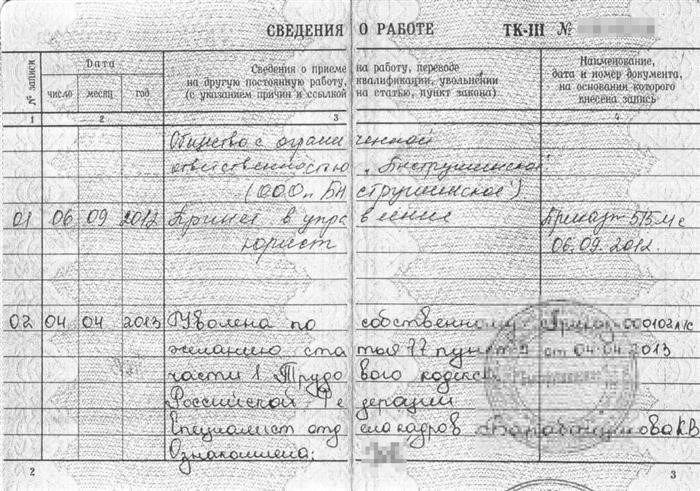 СВЕДЕНИЯ О РАБОТЕ ТК-III №
№ записи
Дата
число месяц год
Сведения о приеме на работу, переводе
на другую постоянную работу, квалификации, увольнении
(с указанием причин и ссылкой на статью, пункт закона)
Наименование,
дата и номер документа,
на основании которого
внесена запись
1 2 3 4
Общество с ограниченной
ответственностью
01 06 09 2012 Принят в управление Приказ
юрист 06.09.2012.
02 04 04 2013 Уволена по собственному Приказ 000102л/с
желанию статья 77 пункт от 04.04.2013
части 1 Трудового кодекса
Российской Федерации
Специалист отдела кадров
Ознакомлена:
2 3